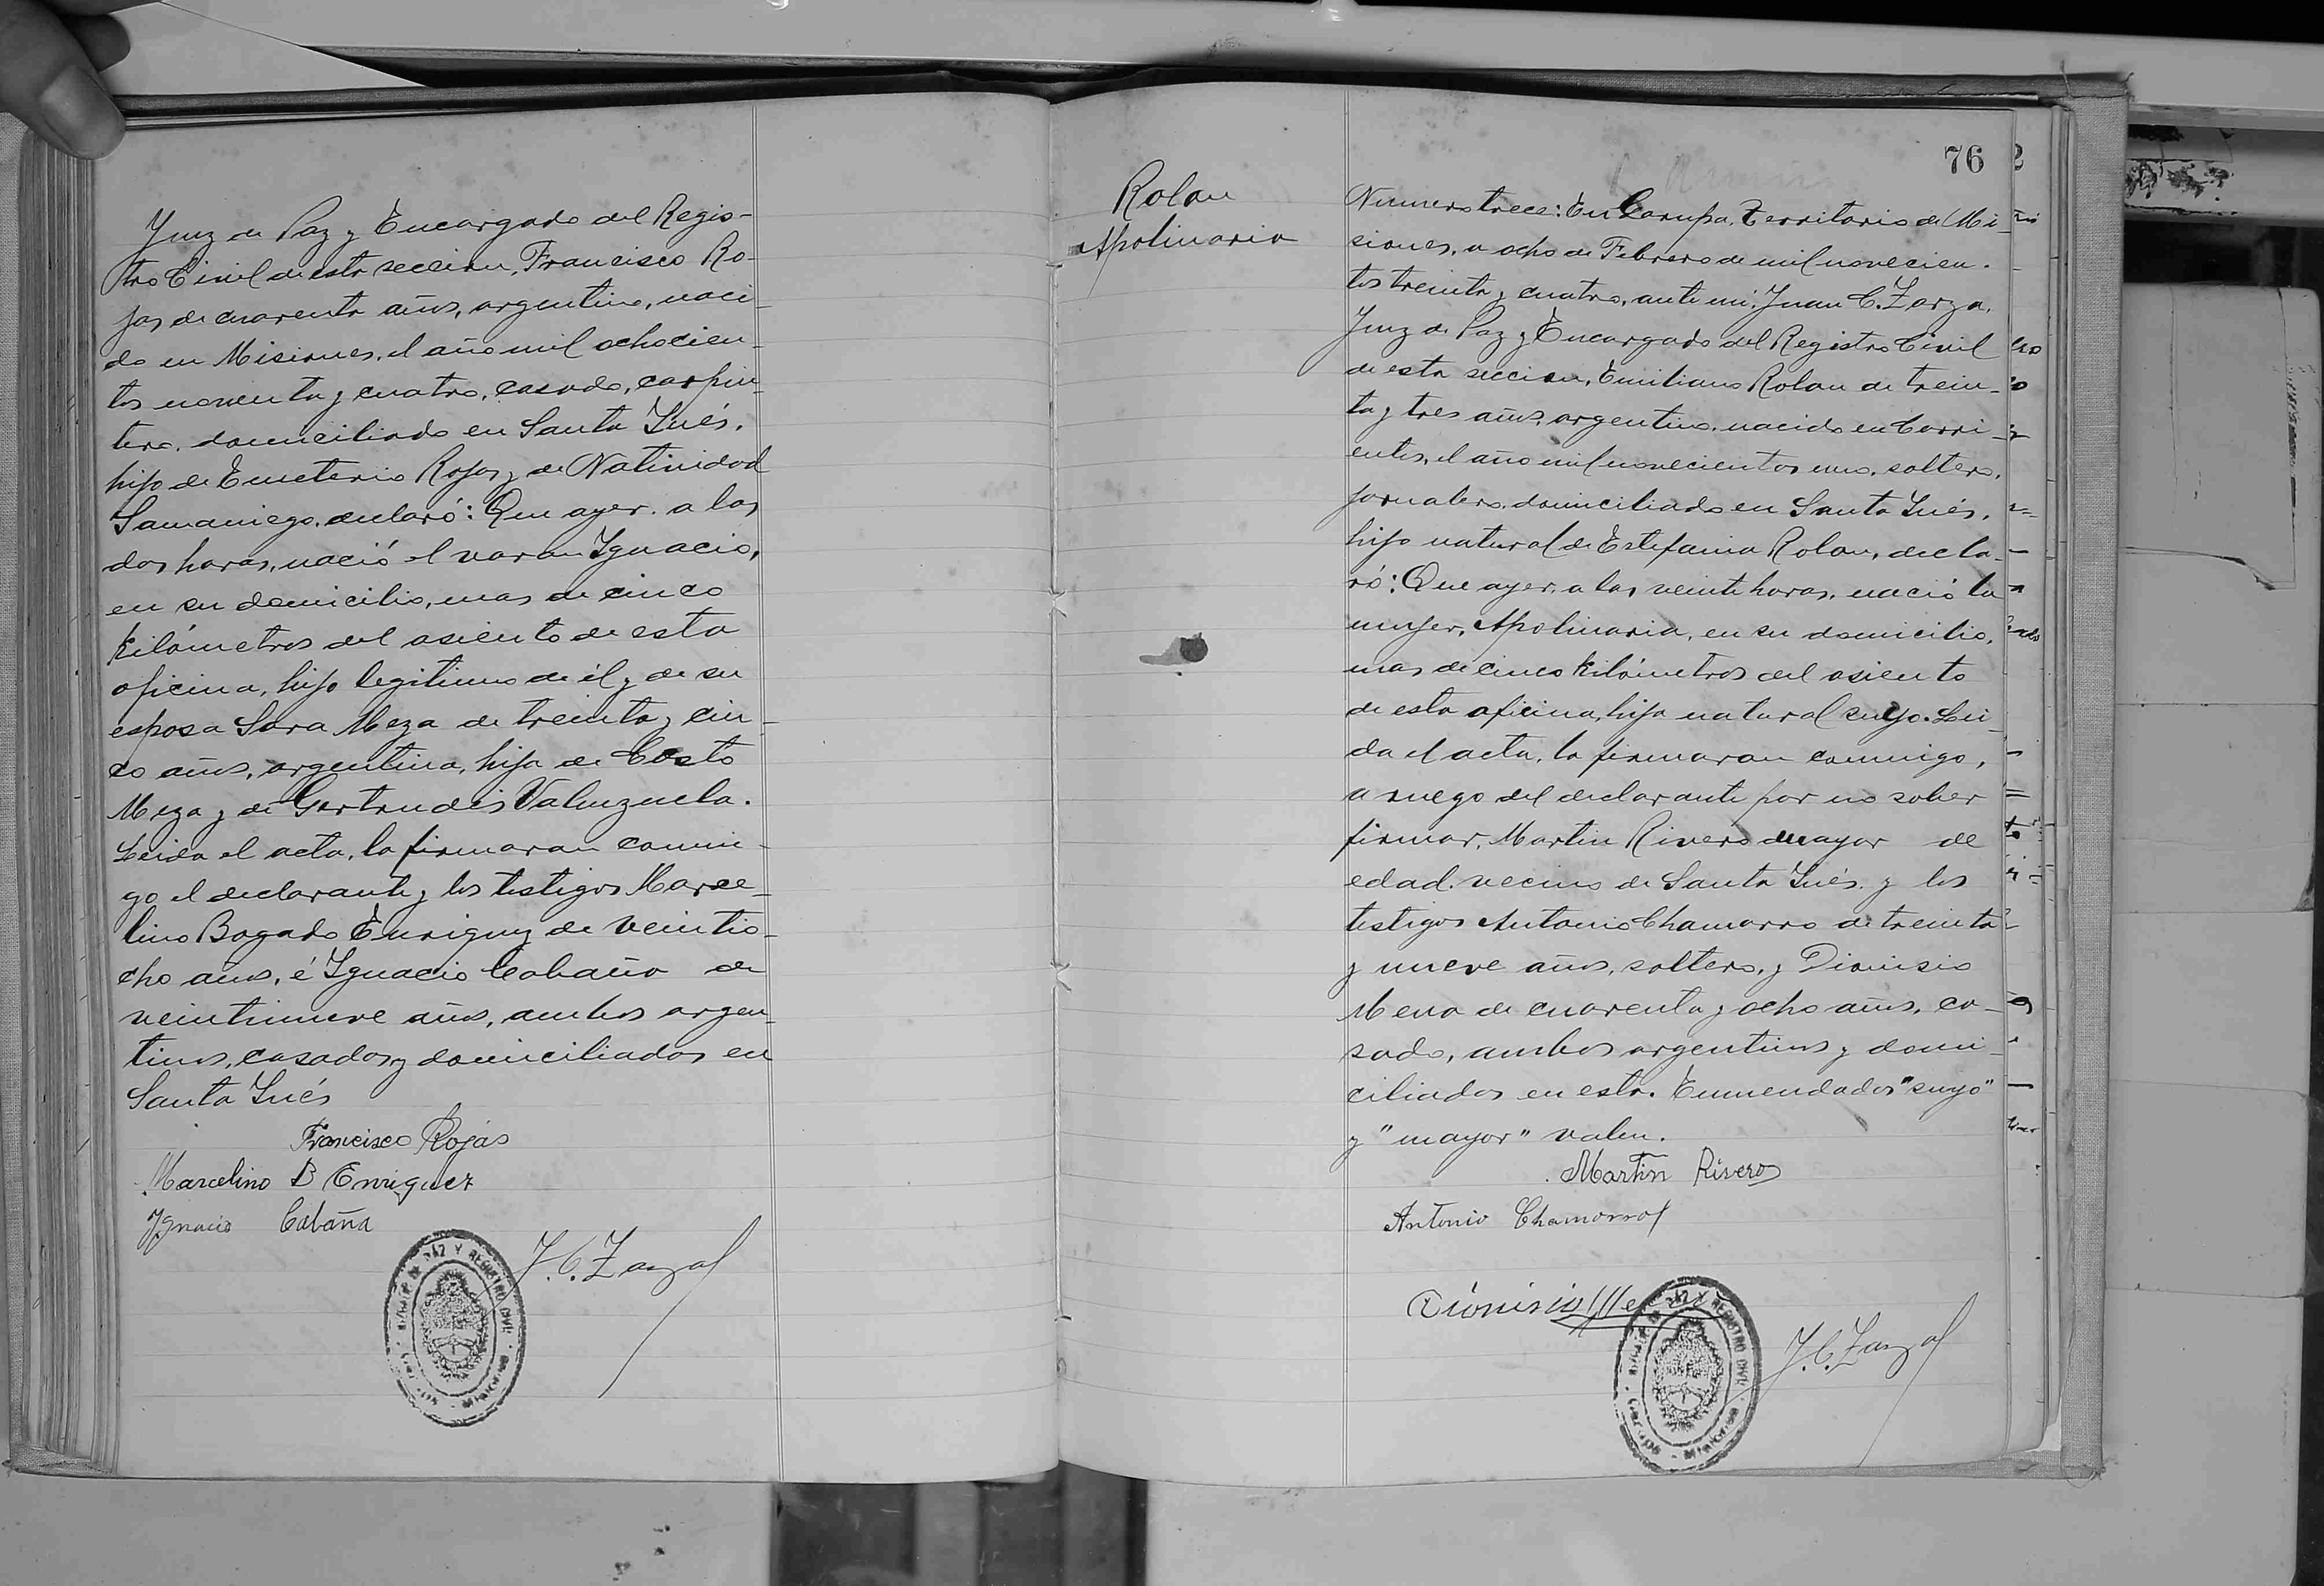 Juez de Paz y Encargado del Regis-
tro Civil de esta seccion, Francisco Ro-
jas de cuarenta años, argentino, naci-
do en Misiones, el año mil ochocien-
tos noventa y cuatro, casado, carpin-
tero, domiciliado en Santa Inés,
hijo de Emeterio Rojas y de Natividad
Samaniego, declaró: Que ayer, a las
dos horas, nació el varon Ignacio,
en su domicilio, mas de cinco
kilómetros del asiento de esta
oficina, hijo legitimo de él y de su
esposa Sara Meza de treinta y cin-
co años, argentina, hija de Casto
Meza y de Gertrudis Valenzuela.
Leida el acta, la firmaron conmi-
go el declarante y los testigos Marce-
lino Bogado Enriquez de veintio-
cho años, é Ignacio Cabaña de
veintinueve años, ambos argen-
tinos, casados y domiciliados en
Santa Inés
Francisco Rojas
Marcelino B Enriquez
Ignacio Cabaña
J. C. Zarza
JUZGADO DE PAZ Y REGISTRO CIVIL
MISIONES
76
Rolon
Apolinaria
Numero trece: En Garupa, Territorio de Mi-
siones, a ocho de Febrero de mil novecien-
tos treinta y cuatro, ante mi, Juan C. Zarza,
Juez de Paz y Encargado del Registro Civil
de esta seccion, Emiliano Rolon de trein-
ta y tres años, argentino, nacido en Corri-
entes, el año mil novecientos uno, soltero,
jornalero, domiciliado en Santa Inés,
hijo natural de Estefania Rolon, decla-
ró: Que ayer, a las veinte horas, nació la
mujer, Apolinaria, en su domicilio,
mas de cinco kilómetros del asiento
de esta oficina, hija natural suyo. Lei-
da el acta, la firmaron conmigo,
a ruego del declarante por no saber
firmar, Martin Rivero mayor de
edad, vecino de Santa Inés, y los
testigos Antonio Chamorro de treinta
y nueve años, soltero, y Dionisio
Mena de cuarenta y ocho años, ca-
sado, ambos argentinos y domi-
ciliados en esta. Enmendados "suyo"
y "mayor" valen.
Martin Rivero
Antonio Chamorro
Dionisio Mena
J. C. Zarza
JUZGADO DE PAZ Y REGISTRO CIVIL
MISIONES